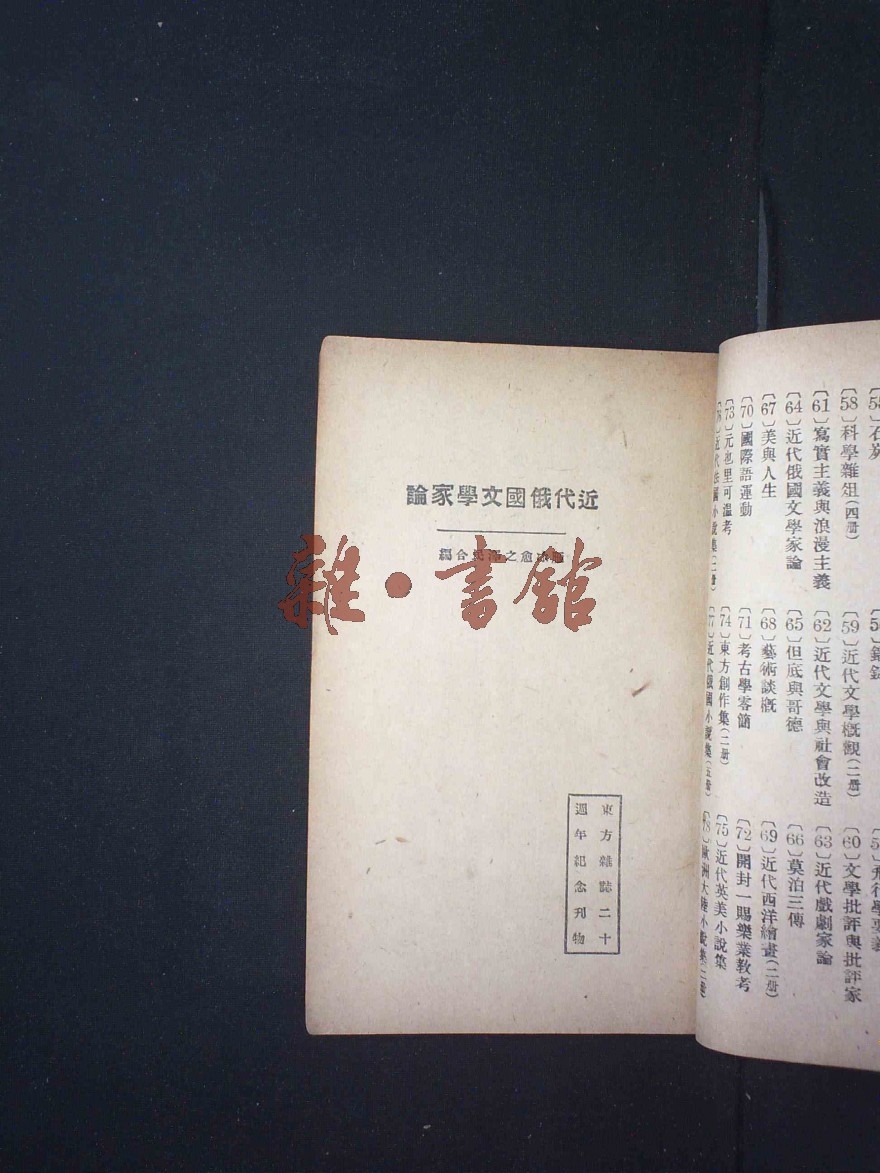 〔58〕科學雜俎(四册) 〔59〕近代文學概觀(二册) 〔60〕文學批評與批評家
〔61〕寫實主義與浪漫主義 〔62〕近代文學與社會改造 〔63〕近代戲劇家論
〔64〕近代俄國文學家論 〔65〕但底與哥德 〔66〕莫泊三傳
〔67〕美與人生 〔68〕藝術談概 〔69〕近代西洋繪畫(二册)
〔70〕國際語運動 〔71〕考古學零簡 〔72〕開封一賜樂業教考
〔73〕元也里可溫考 〔74〕東方創作集(二册) 〔75〕近代英美小說集
近代俄國小說集(五册) 〔78〕歐洲大陸小說集
近代俄國文學家論
愈之 合編
東方雜誌二十
週年紀念刊物
雜·書館